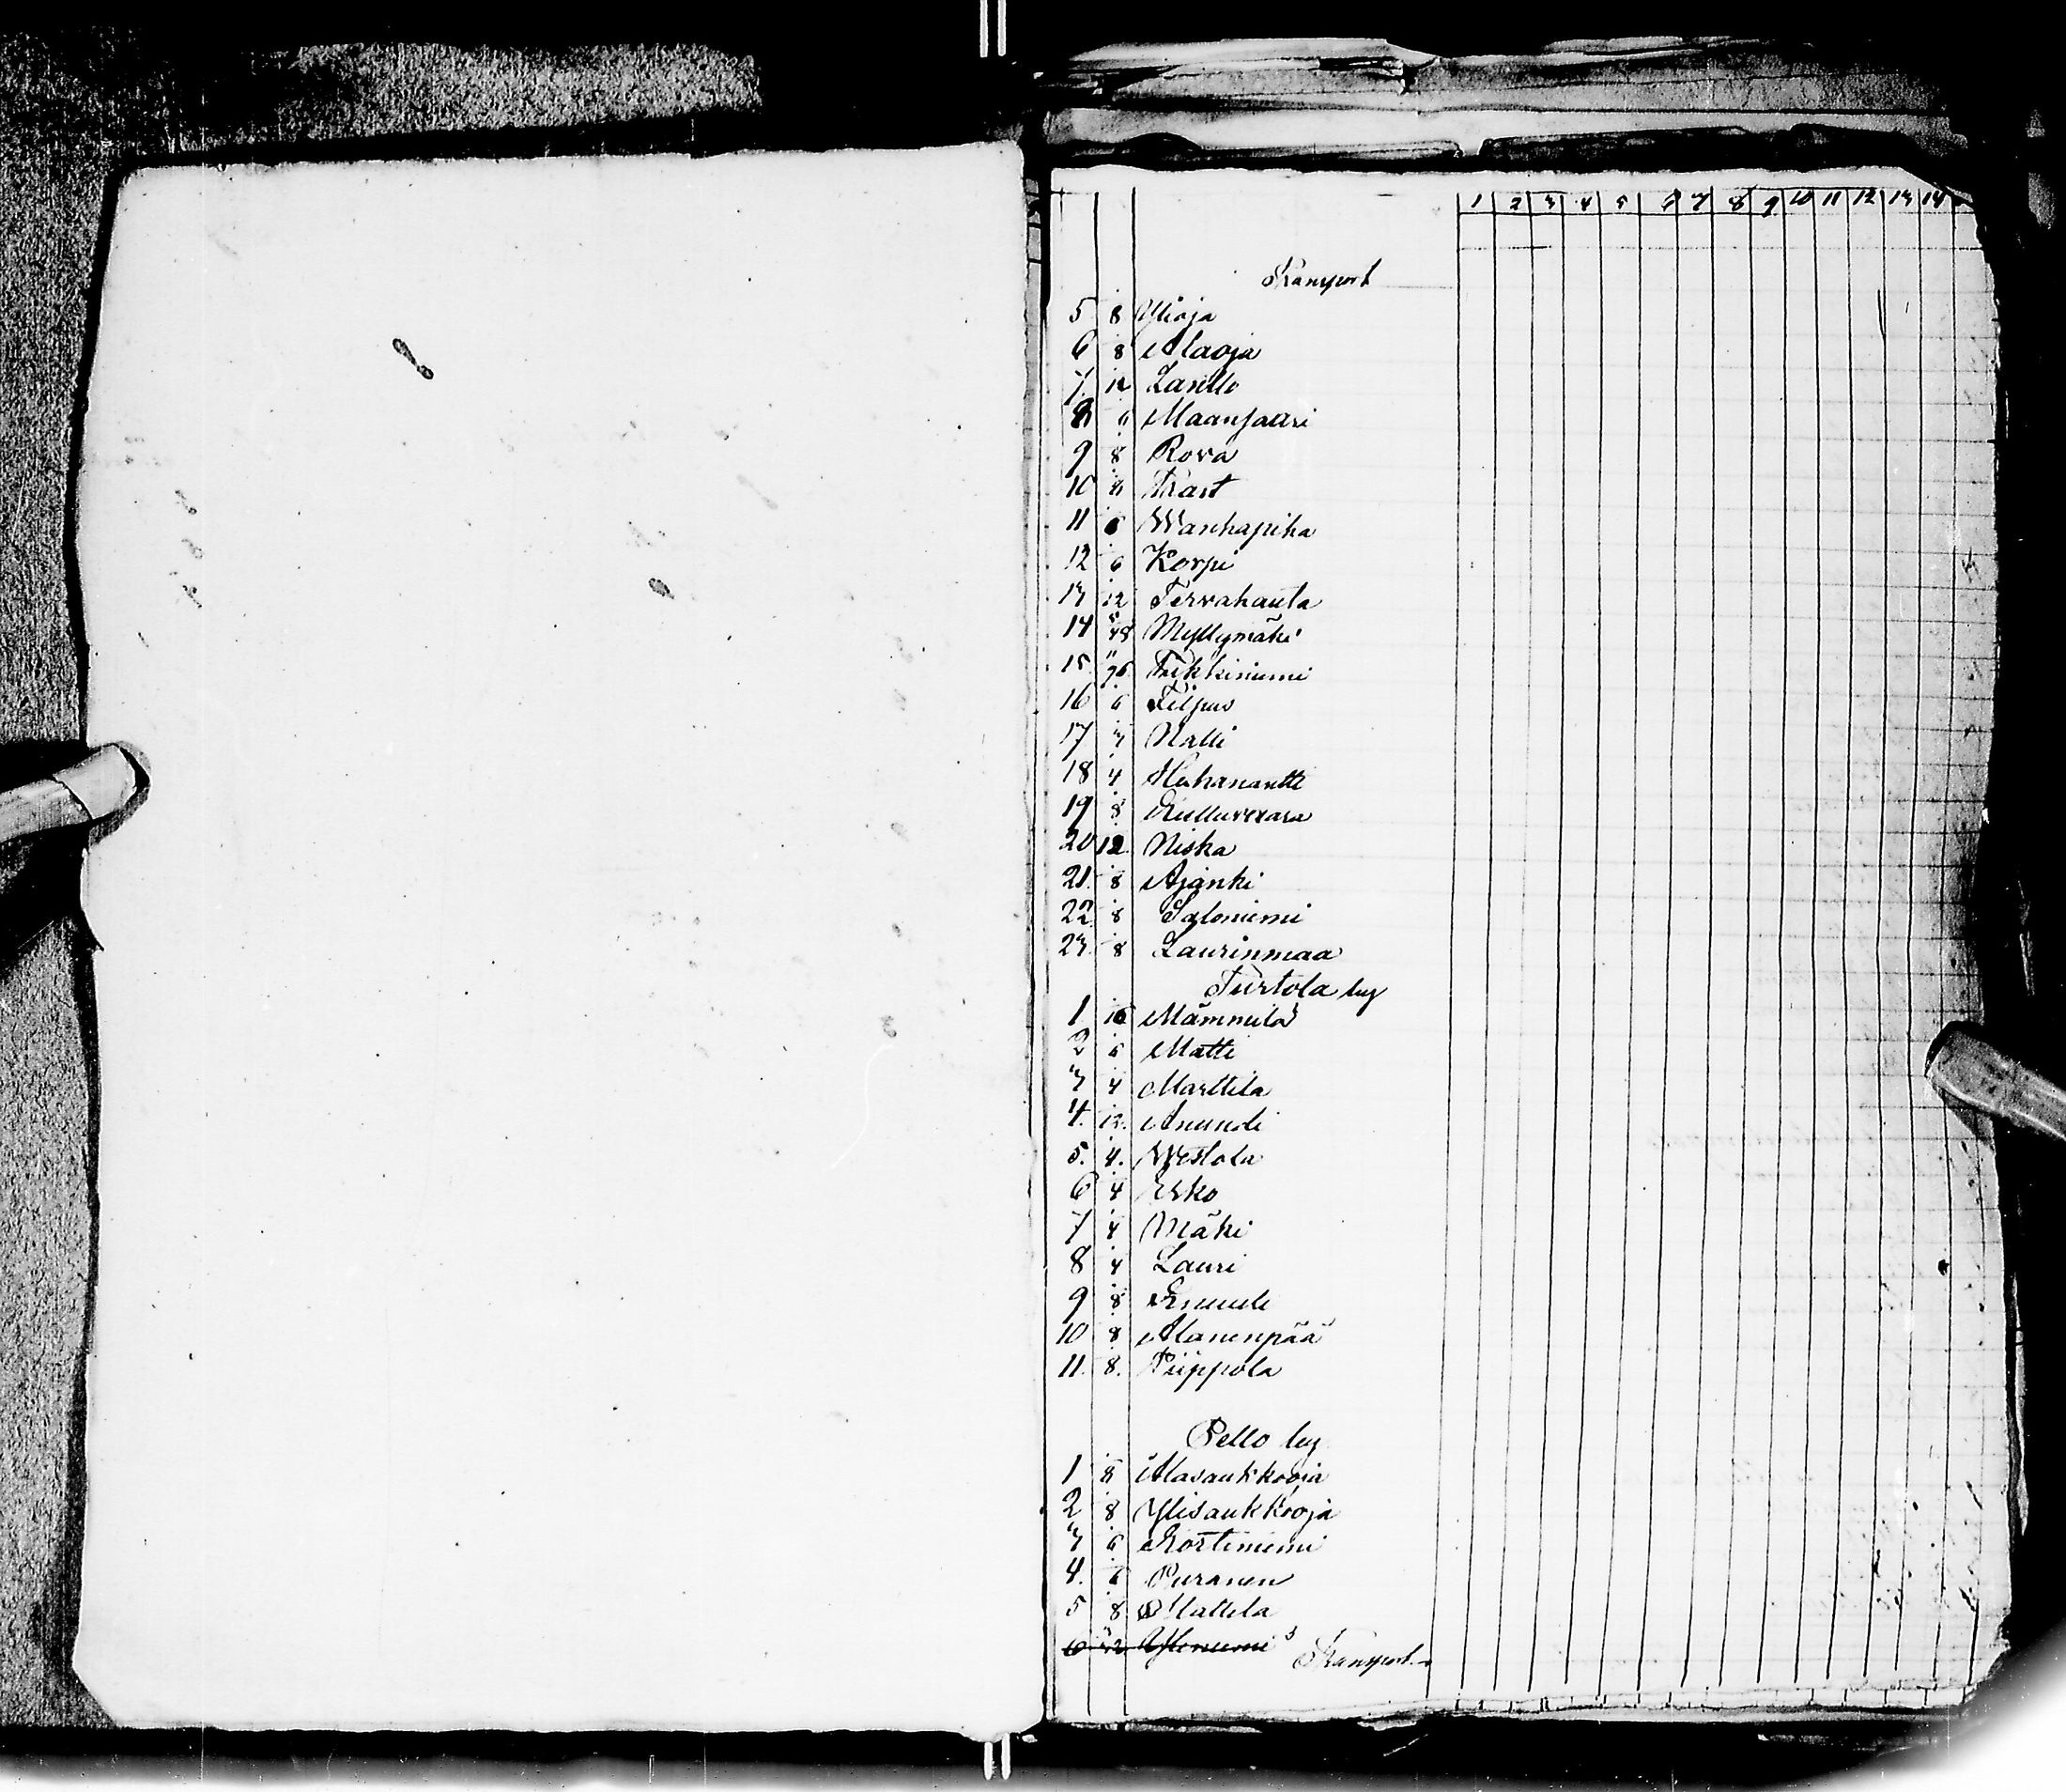 1 2 3 4 5 6 7 8 9 10 11 12 13 14
Transport
5 8 Ylioja
6 8 Alaoja
7. 12 Lantto
8 6 Maanjaari
9 8 Rova
10 8 Krast
11 6 Wanhapiha
12 6 Korpi
13 12 Tervahauta
14 5/48 Myllymäki
15 11/96 Tikkiniemi
16 6 Filpus
17 3 Nalli
18 4 Huhanantti
19 8 Kulluvaara
20 12 Niska
21. 8 Ajanki
22 8 Saloniemi
23. 8 Laurinmaa
Turtola by
1 16 Mämmilä
2 6 Matti
3 4 Marttila
4. 12. Anundi
5. 4. Westola
6 4 Erko
7 4 Mäki
8 4 Lauri
9 8 Snuuti
10 8 Alanenpää
11. 8. Piippola
Pello by
1 8 Alasaukkooja
2 8 Ylisaukkooja
3 6 Kortiniemi
4. 6 Puranen
5 8 Mattila
6 Yliniemi
Transport